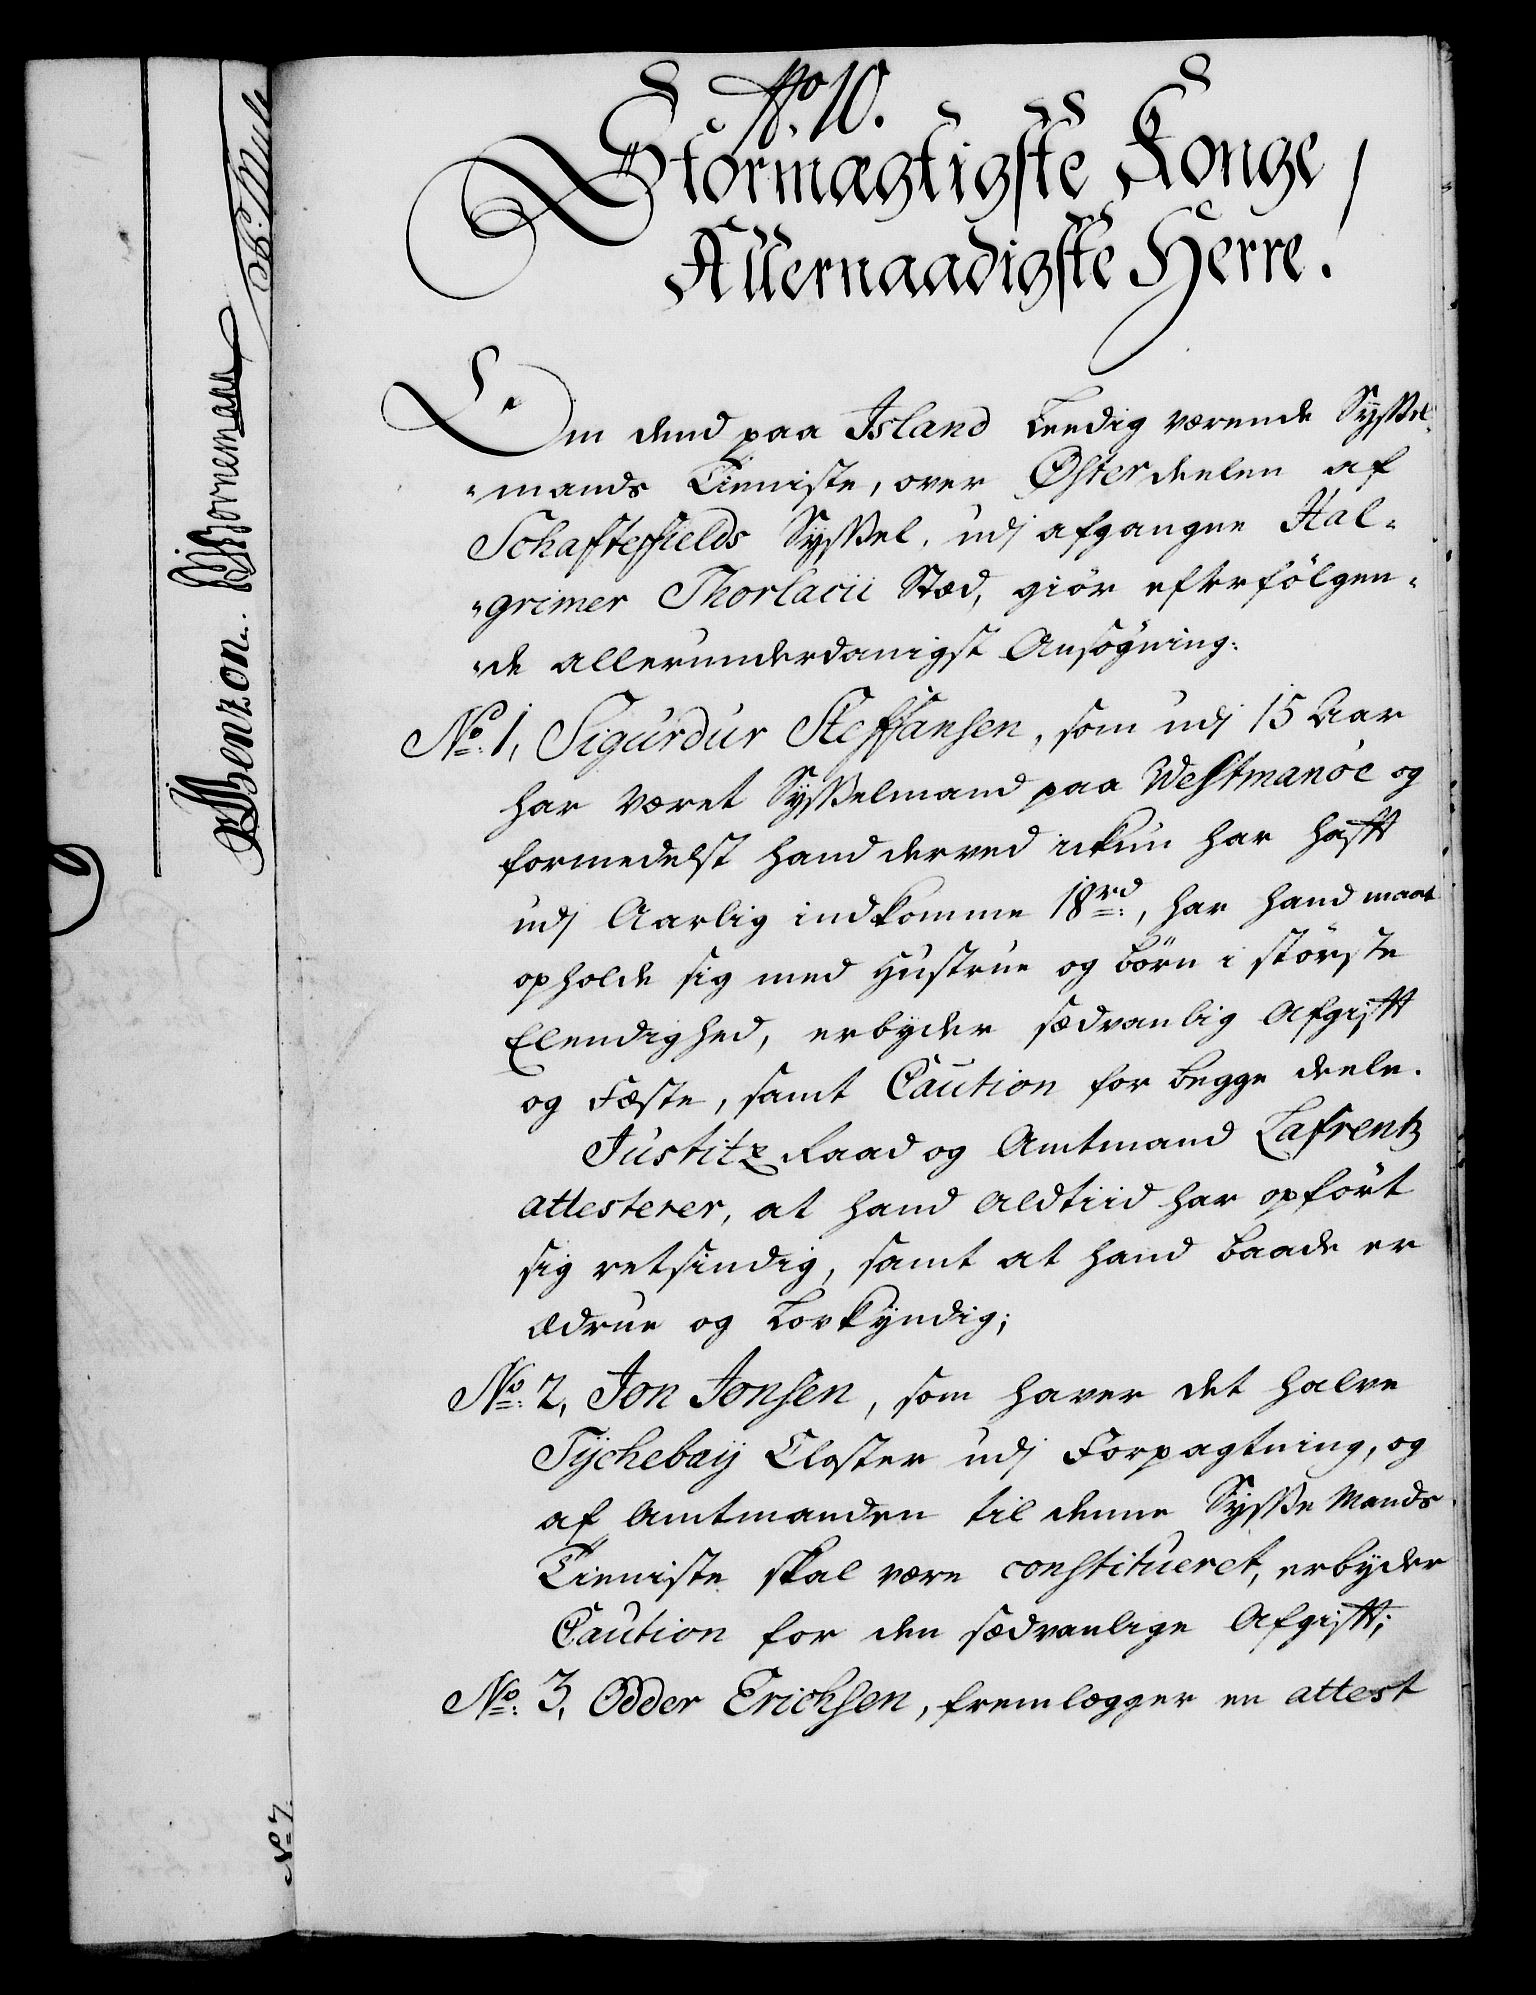 No. 10.
Stormægtigste Konge
Allernaadigste Herre.
Om dend paa Island Leedig værende Syssel-
"mands Tieniste, over Østerdeelen af
Schaftefields Syssel, udj afgangne Hal-
"grimer Thorlacii Stæd, giör efterfölgen-
"de allerunderdanigst Ansøgning:
No: 1, Sigurdur Steffansen, som udj 15 Aar
har været Sysselmand paa Westmanöe og
formedelst hand derved ickun har hafft
udj Aarlig indkomme 18 rd:, har hand maat
opholde sig med Hustrue og börn i störste
Elendighed, erbyder sædvanlig Afgifft
og Fæste, samt Caution for begge deele.
Justitz Raad og Amtmand Lafrentz
attesterer, at hand Aldtiid har opfört
sig retsindig, samt at hand baade er
ædrue og Lovkyndig;
No: 2, Jon Jonsen, som haver det halve
Tychebaÿ Closter udj Forpagtning, og
af Amtmanden til denne Sysse Mands
Tieniste skal være constitueret, erbyder
Caution for den sædvanlige Afgifft;
No: 3, Odder Erichsen, fremlægger en attest
Benzon. Bornemann
No 7.